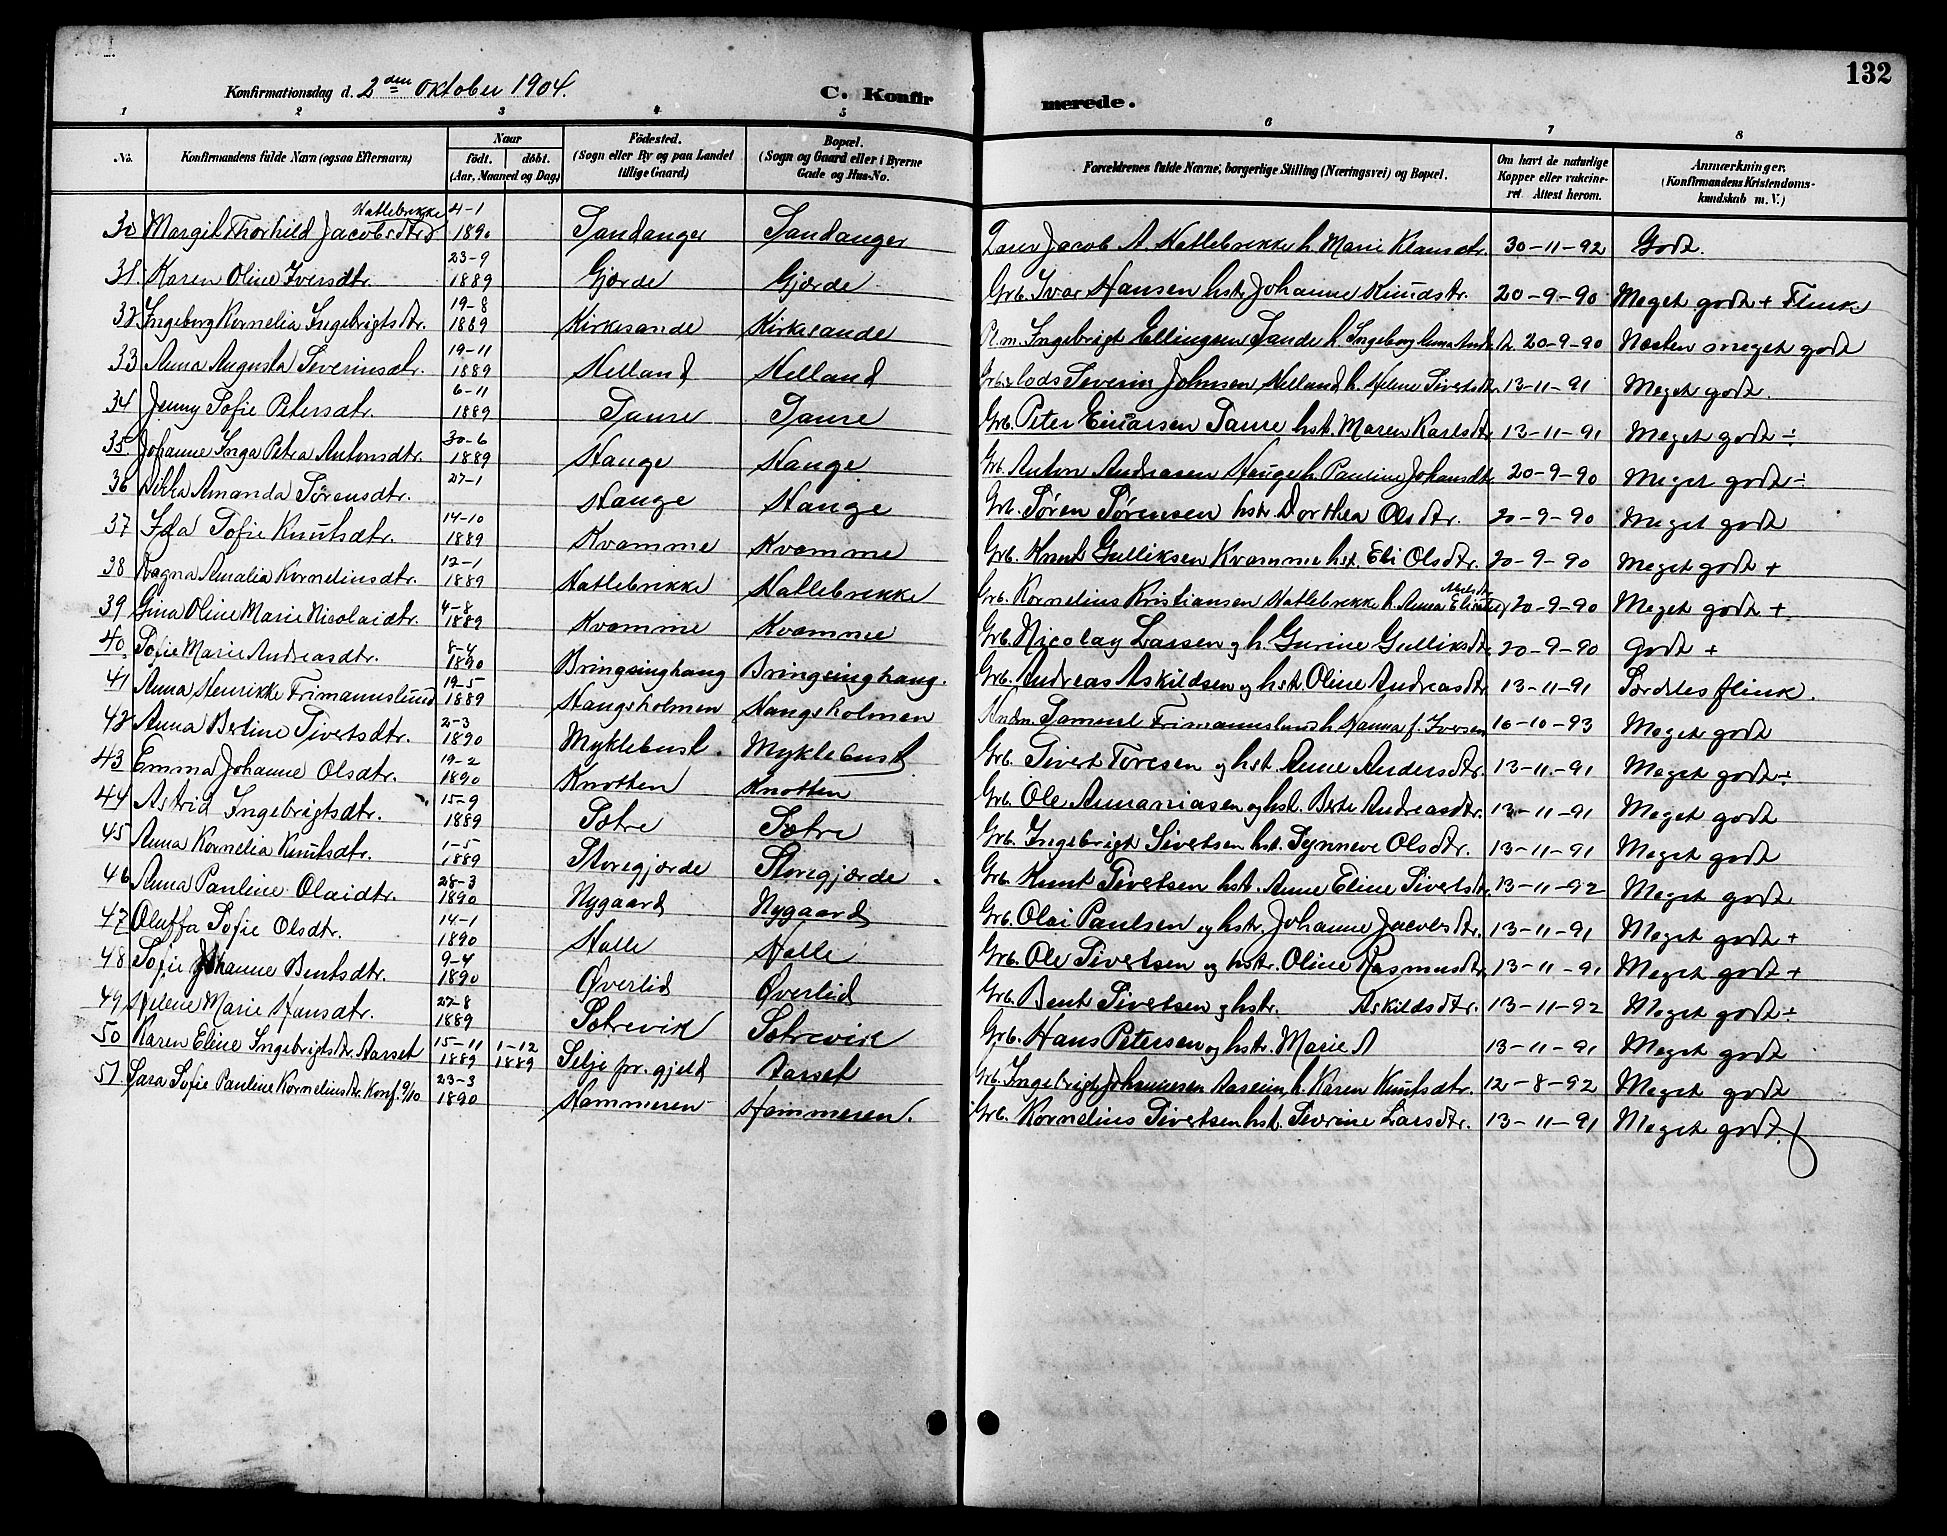 132
Konfirmationsdag d. 2den Oktober 1904.
C. Konfirmerede.
1 2 3 4 5 6 7 8
No. Konfirmandens fulde Navn (ogsaa Efternavn) Naar födt. döbt. (Aar, Maaned og Dag) Födested. (Sogn eller By og paa Landet tillige Gaard) Bopæl. (Sogn og Gaard eller i Byerne Gade og Hus-No. Forældrenes fulde Navne, borgerlige Stilling (Næringsvei) og Bopæl. Om havt de naturlige Kopper eller vakcineret. Attest herom. Anmærkninger. (Konfirmandens Kristendomskundskab m. V.)
30 Margit Thorhild Jacobsdtr Hatlebrekke 4-1 1890 Sandanger Sandanger Jacob A. Hatlebrekke h. Marie Klausdtr. 30-11-92 Godt.
31. Karen Oline Iversdtr. 23-9 1889 Gjerde Gjerde Grb. Ivar Hansen hstr Johanne Knudstr. 20-9-90 Meget godt + Flink
32 Ingeborg Kornelia Ingebrigtsdtr. 19-8 1889 Kirkesande Kirkesande Pl.m. Ingebrigt Ellingsen Sande h. Ingeborg Anna 20-9-90 Næsten meget godt
33 Anna Augusta Severinsdtr. 19-11 1889 Helland Helland Grb. & lods Severin Johnsen Helland h. Helene Sivertsdtr. 13-11-91 Meget godt.
34 Jenny Sofie Petersdtr. 6-11 1889 Saure Saure Grb. Peter Einarsen Saure hstr. Maren Karlsdtr 13-11-91 Meget godt ÷
35 Johanne Inga Petra Antonsdtr. 30-6 1889 Hauge Hauge Grb. Anton Andreasen Hauge h. Pauline Johansdtr 20-9-90 Meget godt ÷
36 Rikka Amanda Sörensdtr. 27-1 Hauge Hauge Grb. Sören Sörensen hstr. Dorthea Olsdtr. 20-9-90 Meget godt
37 Ida Sofie Knutsdtr. 14-10 1889 Kvamme Kvamme Grb. Knut Gulliksen Kvamme hst. Eli Olsdtr. 20-9-90 Meget godt +
38 Ragna Amalia Kornelinsdtr. 12-1 1889 Hatlebrekke Hatlebrekke Grb. Kornelius Kristiansen Hatlebrekke h. Anna 20-9-90 Meget godt +
39 Gina Oline Marie Nicolaidtr. 4-8 1889 Kvamme Kvamme Grb. Nicolay Larsen og h. Gurine Gulliksdtr. 20-9-90 Godt +
40. Sofie Marie Andreasdtr. 8-4 1890 Bringsinghaug Bringsinghaug. Grb. Andreas Askildsen og hst. Oline Andreasdtr 13-11-91 Særdeles flink.
41 Anna Henrikke Frimannslund 19-5 1889 Haugsholmen Haugsholmen Handm. Samuel Frimannslund h. Hanna f. Iversen 16-10-93 Meget godt
42 Anna Bertine Sivertsdtr. 2-3 1890 Myklebust. Myklebust Grb. Sivert Toresen og hst. Anne Andersdtr. 13-11-91 Meget godt ÷
43 Emma Johanne Olsdtr. 19-2 1890 Knotten Knotten Grb. Ole Ananiasen og hst. Berte Andreasdtr. 13-11-91 Meget godt
44 Astrid Ingebrigtsdtr. 15-9 1889 Sætre Sætre Grb. Ingebrigt Sivertsen hst. Synneve Olsdtr. 13-11-91 Meget godt
45 Anna Kornelia Knutsdtr. 1-5 1889 Storegjerde Storegjerde Grb. Knut Sivertsen hst. Anne Eline Sivertsdtr 13-11-92 Meget godt
46 Anna Pauline Olaidtr. 28-3 1890 Nygaard Nygaard Grb. Olai Paulsen og hstr. Johanne Jacobsdtr. 13-11-91 Meget godt +
47 Oluffa Sofie Olsdtr. 14-1 1890 Halle Halle Grb. Ole Sivertsen og hstr. Oline Rasmusdtr 13-11-91 Meget godt +
48 Sofie Johanne Bentsdtr. 9-4 1890 Øverlid Øverlid Grb. Bent Sivertsen og hstr. Askildsdtr. 13-11-92 Meget godt ÷
49 Helene Marie Hansdtr. 27-8 1889 Sætrevik Sætrevik Grb. Hans Petersen og hstr. Marie A 13-11-91 Meget godt
50 Karen Eline Ingebrigtsdtr. Aarset 15-11 1889 1-12 1889 Selje pr.gjeld Aarset Grb. Ingebrigt Johannesen Aaseim, h. Karen Knutsdtr. 12-8-92 Meget godt
51 Sara Sofie Pauline Kornelinsdtr. Konf. 9/10 23-3 1890 Hammeren Hammeren. Grb. Kornelius Sivertsen hst. Sivrine Larsdtr. 13-11-91 Meget godt.